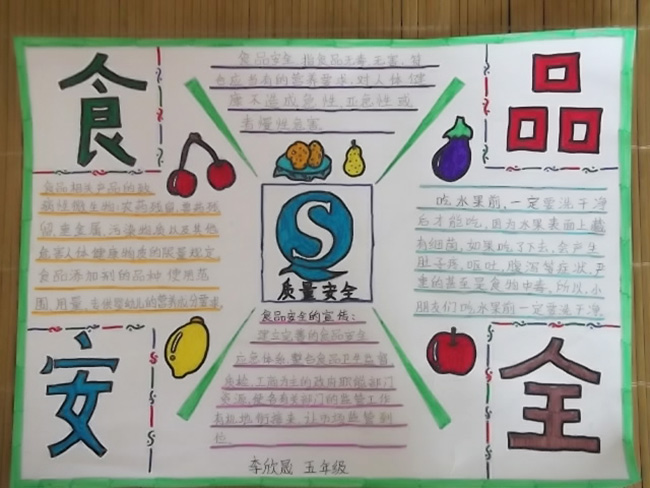 食
品
食品安全,指食品无毒、无害,符
合应当有的营养要求,对人体健
康不造成急性、亚急性或
者慢性危害
食品相关产品的致
病性微生物,农药残留,兽药残
留,重金属,污染物质以及其他
危害人体健康物质的限量规定
食品添加剂的品种、使用范
围、用量,专供婴幼儿的营养成分要求
S
质量安全
吃水果前,一定要洗干净
后才能吃,因为水果表面上
有细菌,如果吃了下去,会产生
肚子疼,呕吐,腹泻等症状,严
重的甚至是食物中毒,所以,小
朋友们吃水果前一定要洗干净
食品安全的宣传:
建立完善的食品安全
整合食品卫生监督
质检,工商为主的政府职能部门
资源,使各有关部门的监管工作
有机地衔接起来,让市场监管到
位
安
全
李欣晟 五年级